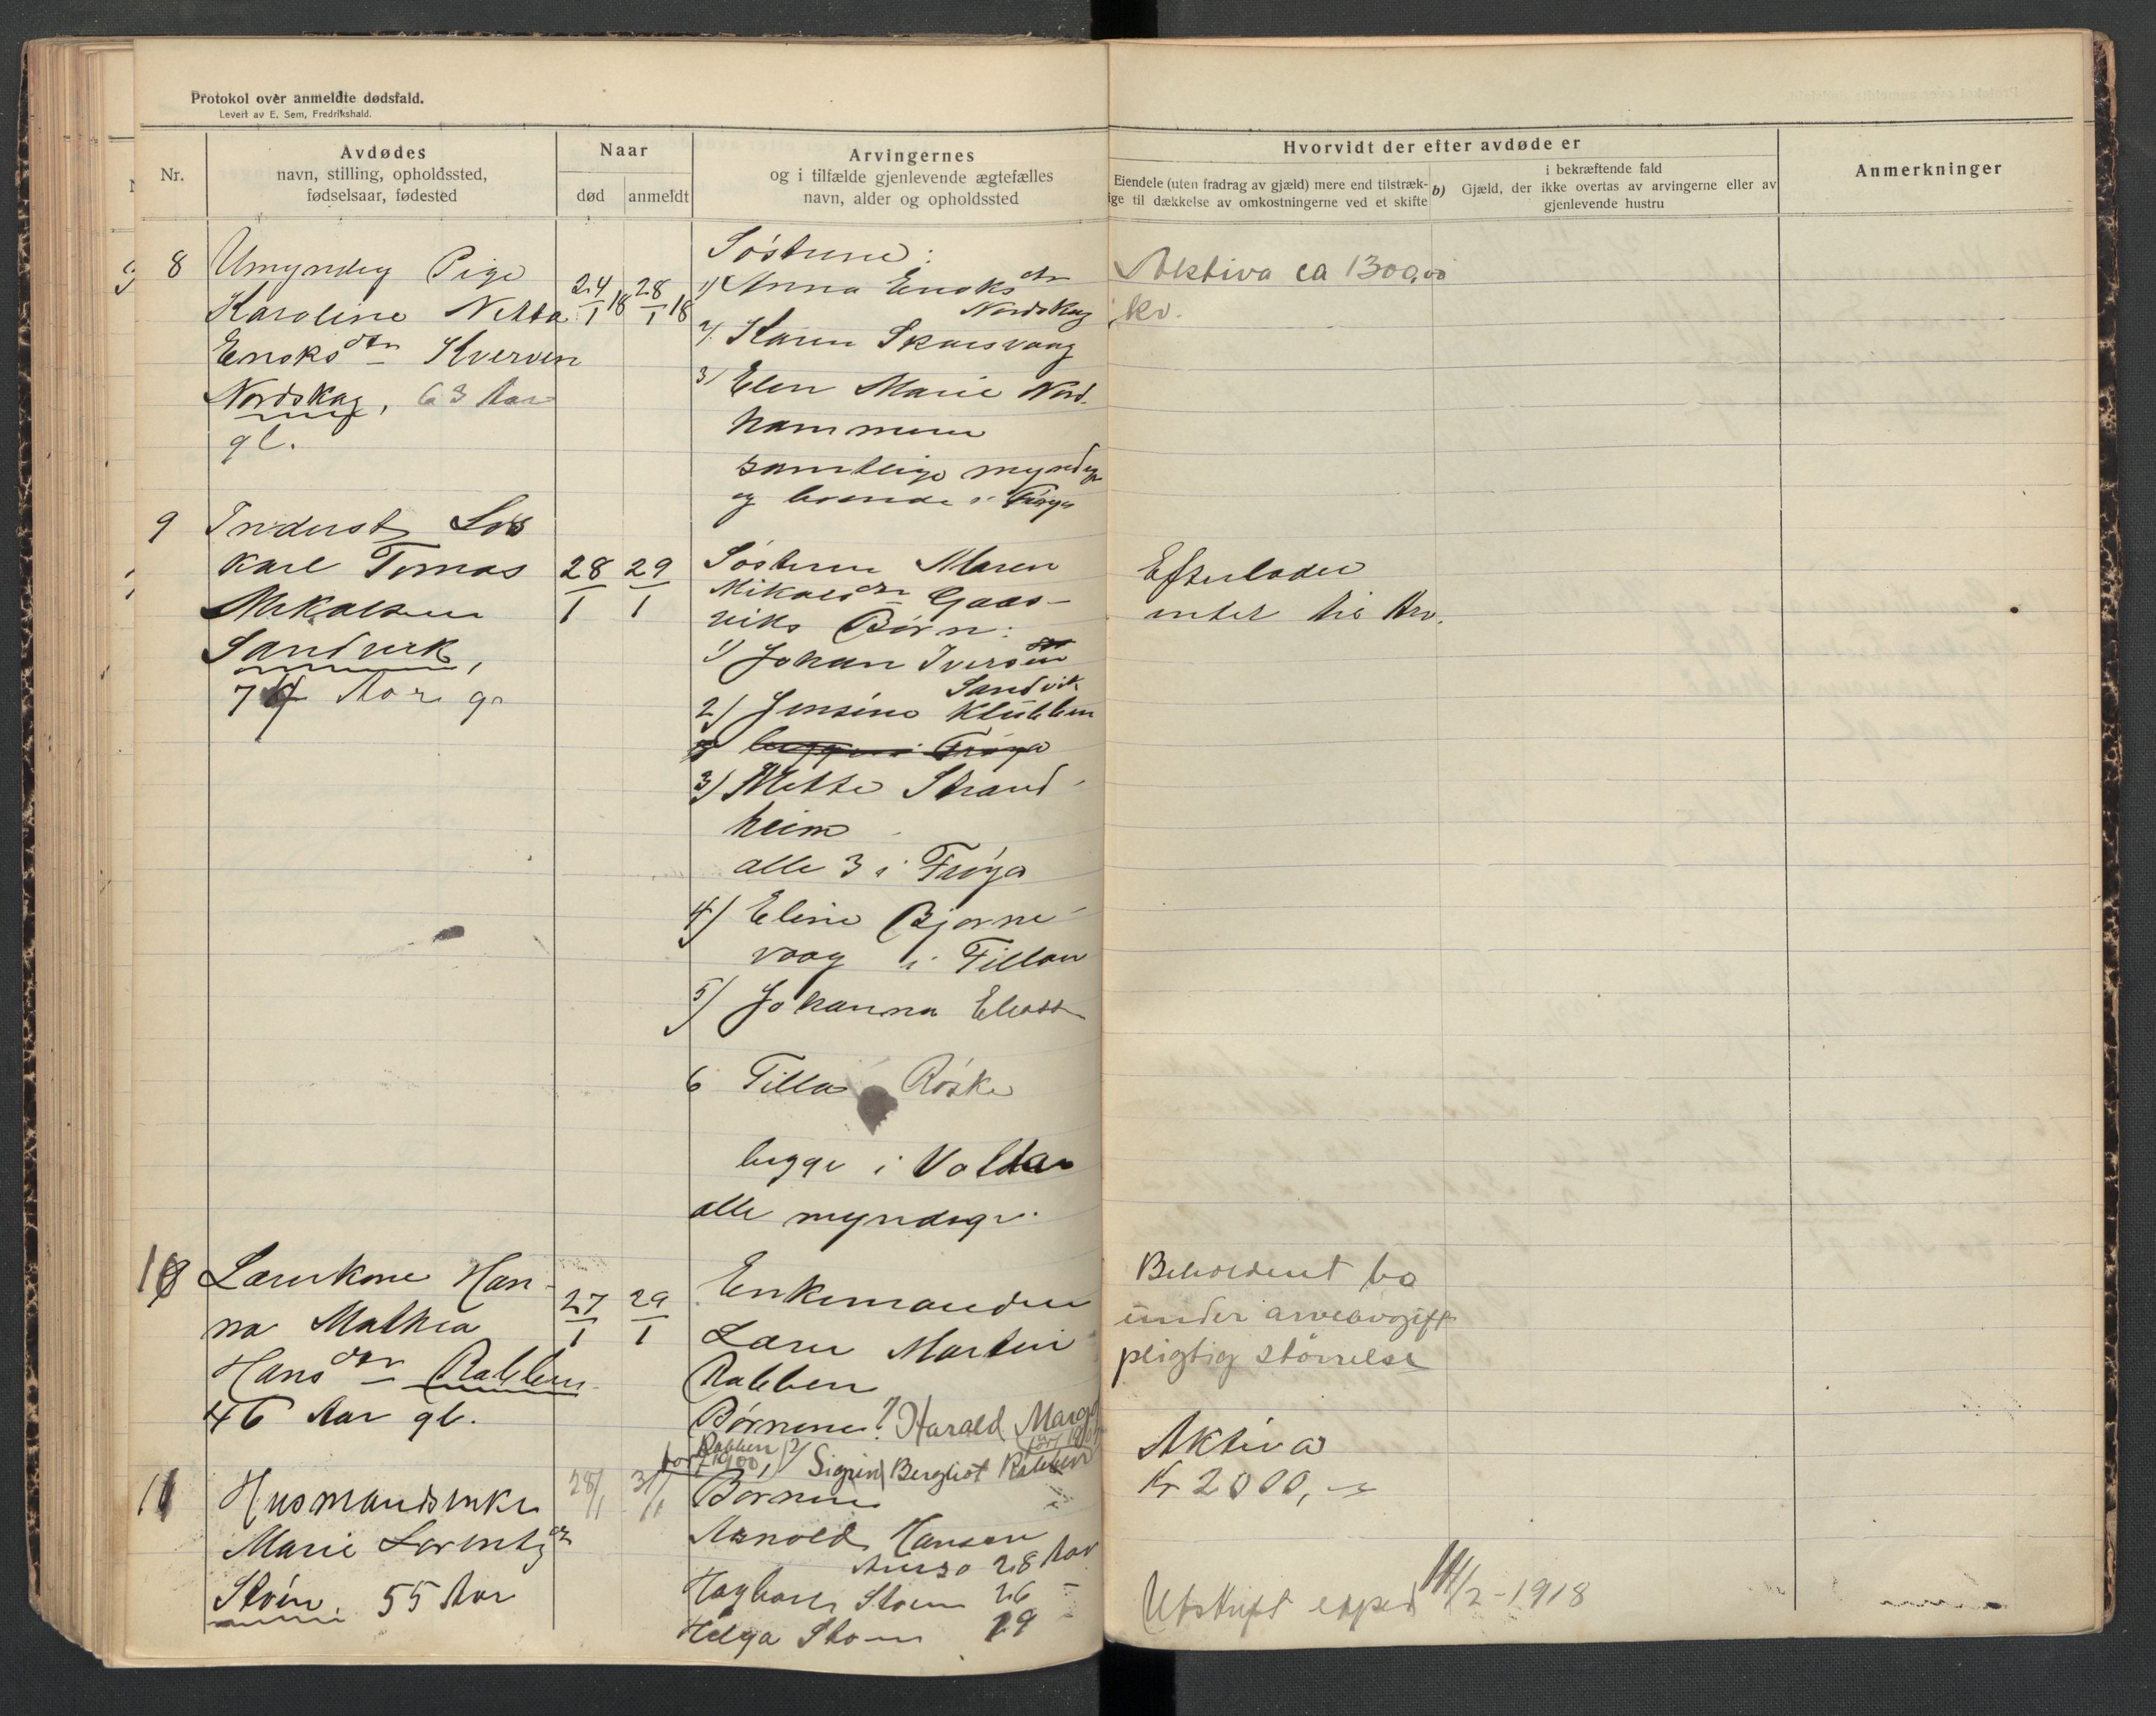 Protokol over anmeldte dødsfald.
Levert av E. Sem, Fredrikshald.
Nr.
Avdødes
navn, stilling, opholdssted,
fødselsaar, fødested
Naar
død
anmeldt
Arvingernes
og i tilfælde gjenlevende ægtefælles
navn, alder og opholdssted
Hvorvidt der efter avdøde er
Eiendele (uten fradrag av gjæld) mere end tilstræk-
ige til dækkelse av omkostningerne ved et skifte
b) Gjæld, der
i bekræftende fald
ikke overtas av arvingerne eller av
gjenlevende hustru
Anmerkninger
8
Umyndig Pige
Karoline Netta
Enoksdtr Kverven
Nordskag, 63 Aar
gl.
24/1 18
28/1 18
Søstrene:
1) Anna Enoksdtr
Nordskag
2/ Karen Skarsvaag
3/ Elen Marie Nord-
hammeren
samtlige myndige
og boende i Frøya
Aktiva ca 1300,00
kr.
9
Inderst Løs
karl Tomas
Mikalsen
Sandvik,
74 Aar gl
28/1
29/1
Søsteren Maren
Mikalsdtr Gaas-
viks Børn:
1) Johan Iversen
Sandvik
2) Jensine Klubben
begge i Frøya
3) Mette Strand-
heim
alle 3 i Frøya
4) Eline Bjørne-
vaag i Fillan
5) Johanna
6 Tilla Røske
begge i
alle myndige.
Efterlader
intet til Arv.
10
Lærerkone Han-
na Mathea
Hansdtr Rabben
46 Aar gl.
27/1
29/1
Enkemanden
Lærer Martin
Rabben
Børnene: 1) Harald
Rabben
født 1900, 2/ Sigrid Bergliot Rabben
Beholdent bo
under arveavgift
pligtig størrelse
11
Husmandsenke
Marie Lorentzdtr
Støen, 55 Aar
28/1
31/1
Børnene
Arnold Hansen
28 Aar
Hagbart Støen 26 -
Helga Støen 19 -
Aktiva
Kr 2000,-
Utskrift exped 14/2-1918